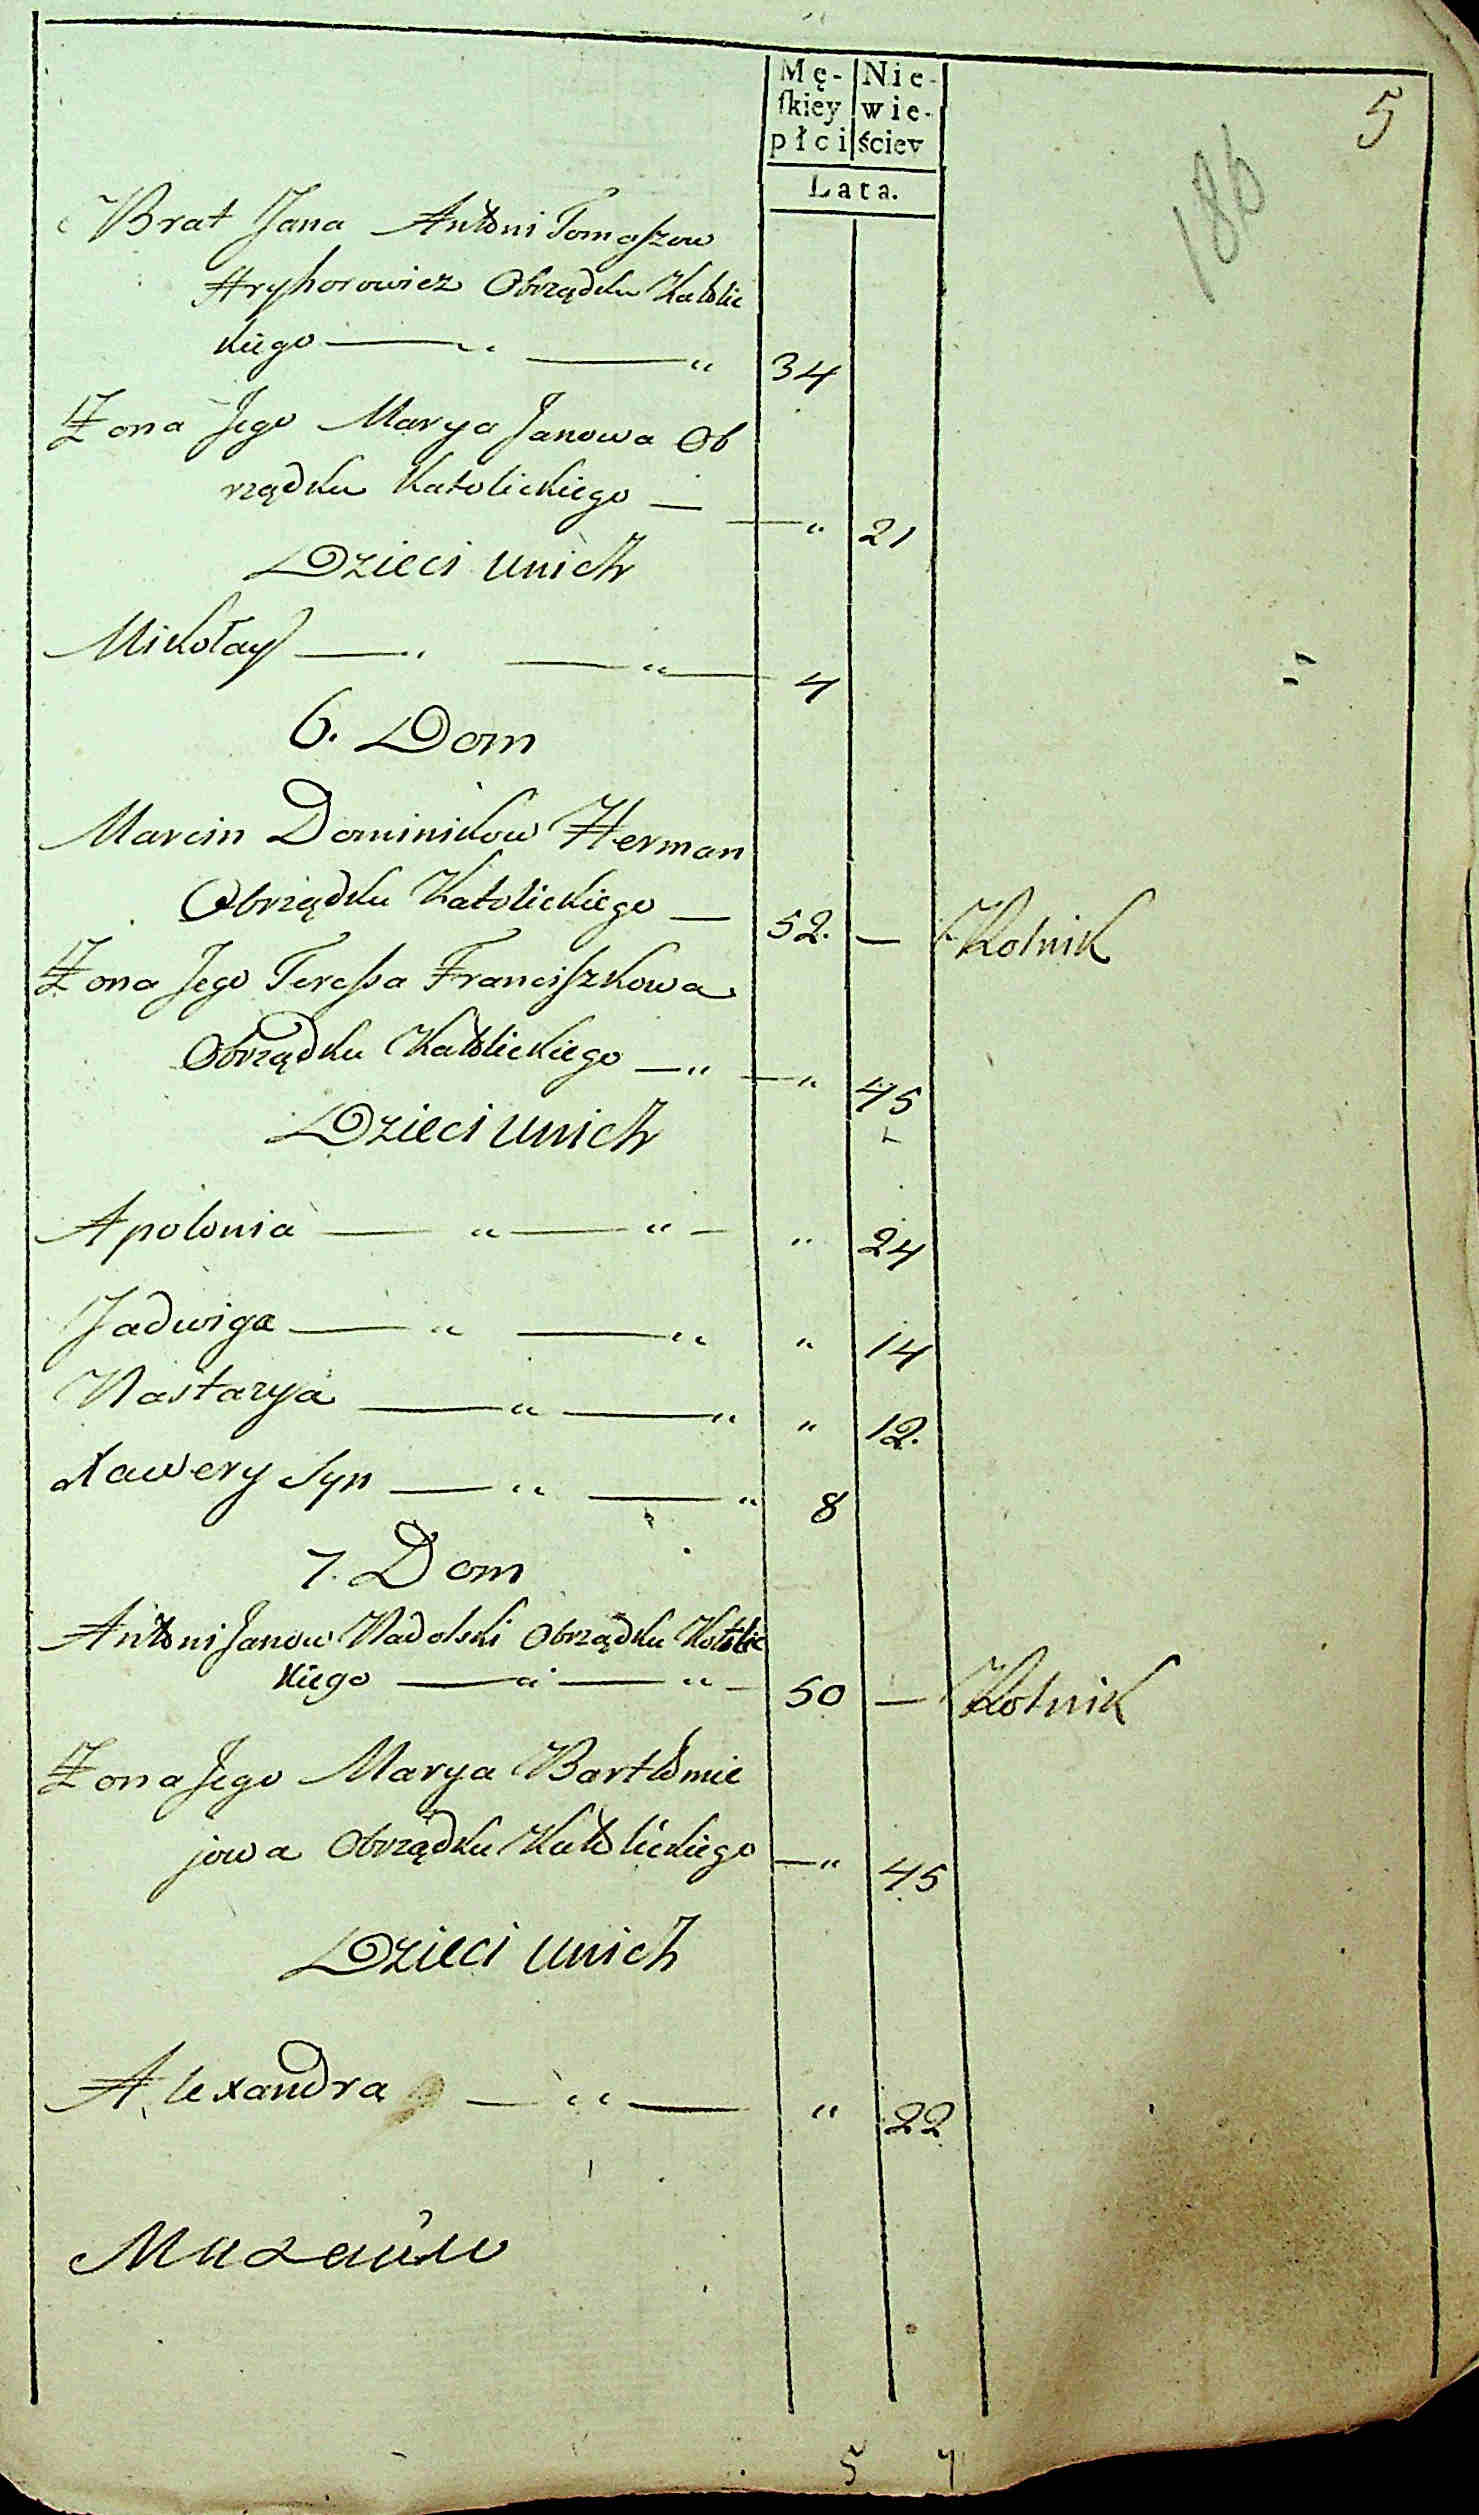 5
186
Mę- Nie-
ſkiey wie-
płci ściey
Lata.
Brat Jana Antoni Tomaszow
Hryhorowicz Obrządku Katolic
kiego — " — " 34
Żona Jego Marya Janowa Ob
rządku Katolickiego — — " 21
Dzieci unich
Mikołay — " — " — 4
6. Dom
Marcin Dominikow Herman
Obrządku Katolickiego — 52. — Rolnik
Żona Jego Teressa Franciszkowa
Obrządku Katolickiego — " — " 45
Dzieci unich
Apolonia — " — " — " 24
Jadwiga — " — " " 14
Nastazya — " — " " 12.
Xawery Syn — " — " 8
7. Dom
Antoni Janow Nadolski Obrządku Katolic
kiego — " — " — 50 — Rolnik
Żona Jego Marya Bartłomie
jowa Obrządku Katolickiego — " 45
Dzieci unich
Alexandra — " — " 22
5 7